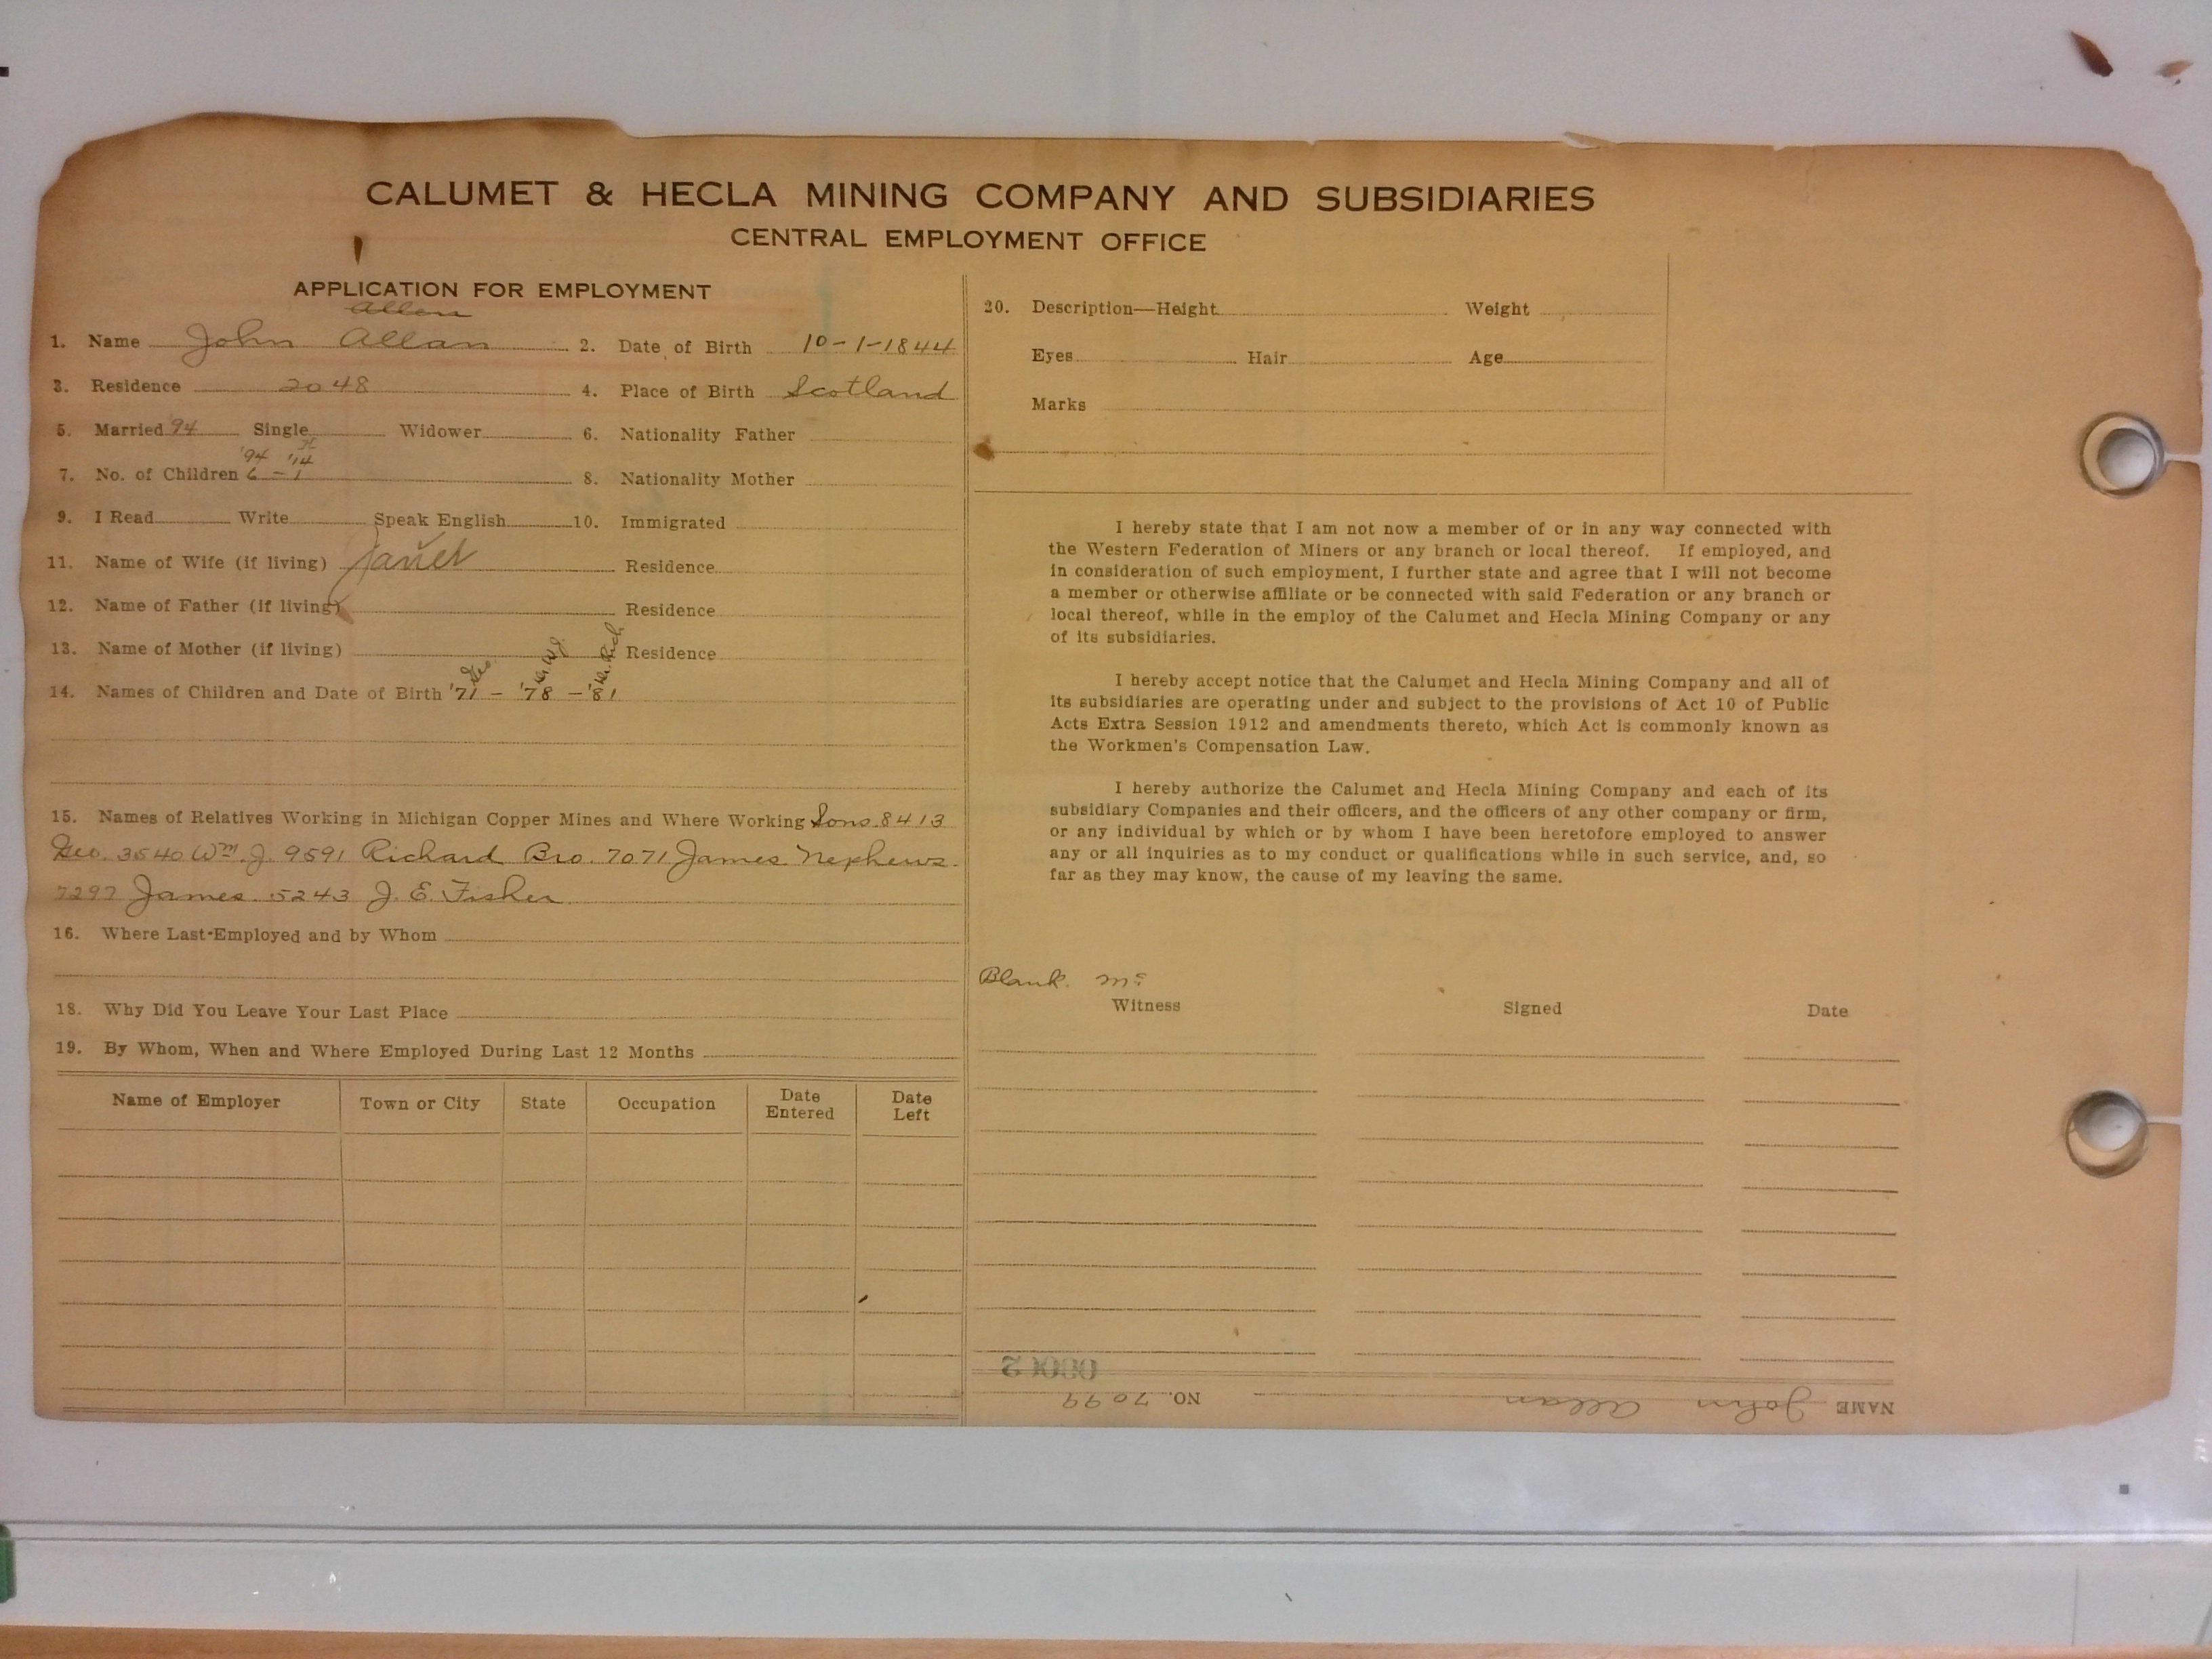 CALUMET & HECLA MINING COMPANY AND SUBSIDIARIES
CENTRAL EMPLOYMENT OFFICE
APPLICATION FOR EMPLOYMENT
Allen
1. Name John Allan 2. Date of Birth 10-1-1844
3. Residence 2048 4. Place of Birth Scotland
5. Married '94 Single Widower 6. Nationality Father
'94 '14
7. No. of Children 6 - 1 8. Nationality Mother
9. I Read Write Speak English 10. Immigrated
11. Name of Wife (if living) Janet Residence
12. Name of Father (if living) Residence
13. Name of Mother (if living) Residence
Geo. Wm. J. Rich.
14. Names of Children and Date of Birth '71 - '78 - '81
15. Names of Relatives Working in Michigan Copper Mines and Where Working Sons. 8413
Geo. 3540 Wm. J. 9591 Richard Bro. 7071 James Nephews.
7297 James. 5243 J. E. Fisher
16. Where Last Employed and by Whom
18. Why Did You Leave Your Last Place
19. By Whom, When and Where Employed During Last 12 Months
Name of Employer Town or City State Occupation Date Entered Date Left
20. Description—Height Weight
Eyes Hair Age
Marks
I hereby state that I am not now a member of or in any way connected with
the Western Federation of Miners or any branch or local thereof. If employed, and
in consideration of such employment, I further state and agree that I will not become
a member or otherwise affiliate or be connected with said Federation or any branch or
local thereof, while in the employ of the Calumet and Hecla Mining Company or any
of its subsidiaries.
I hereby accept notice that the Calumet and Hecla Mining Company and all of
its subsidiaries are operating under and subject to the provisions of Act 10 of Public
Acts Extra Session 1912 and amendments thereto, which Act is commonly known as
the Workmen's Compensation Law.
I hereby authorize the Calumet and Hecla Mining Company and each of its
subsidiary Companies and their officers, and the officers of any other company or firm,
or any individual by which or by whom I have been heretofore employed to answer
any or all inquiries as to my conduct or qualifications while in such service, and, so
far as they may know, the cause of my leaving the same.
Blank.
Witness Signed Date
NAME John Allan NO. 7099